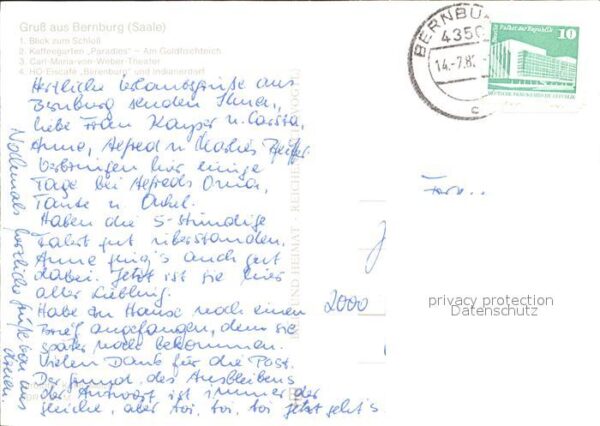 Gruß aus Bernburg (Saale)
1. Blick zum Schloß
2. Kaffeegarten „Paradies" – Am Goldfischteich
3. Carl-Maria-von-Weber-Theater
4. HO-Eiscafé „Bärenburg" und Indianerdorf
BERNBURG
4350
14.-7.8
c
Palast der Republik
10
Herzliche Urlaubsgrüße aus
Bernburg senden Ihnen,
liebe Frau Kayser u.
Anne, Alfred u.
Verbringen hier einige
Tage bei Alfreds Oma,
Tante u. Onkel.
Haben die 5-stündige
Fahrt gut überstanden.
Anne ging's auch gut
dabei. Jetzt ist sie hier
aller Liebling.
Habe zu Hause noch einen
Brief angefangen, den sie
später noch bekommen.
Vielen Dank für die Post.
Der Grund des Ausbleibens
der Antwort ist immer der
gleiche, aber toi, toi, toi jetzt geht's
Nochmals herzliche Grüße von uns
dreien.
Frau
2000
privacy protection
Datenschutz